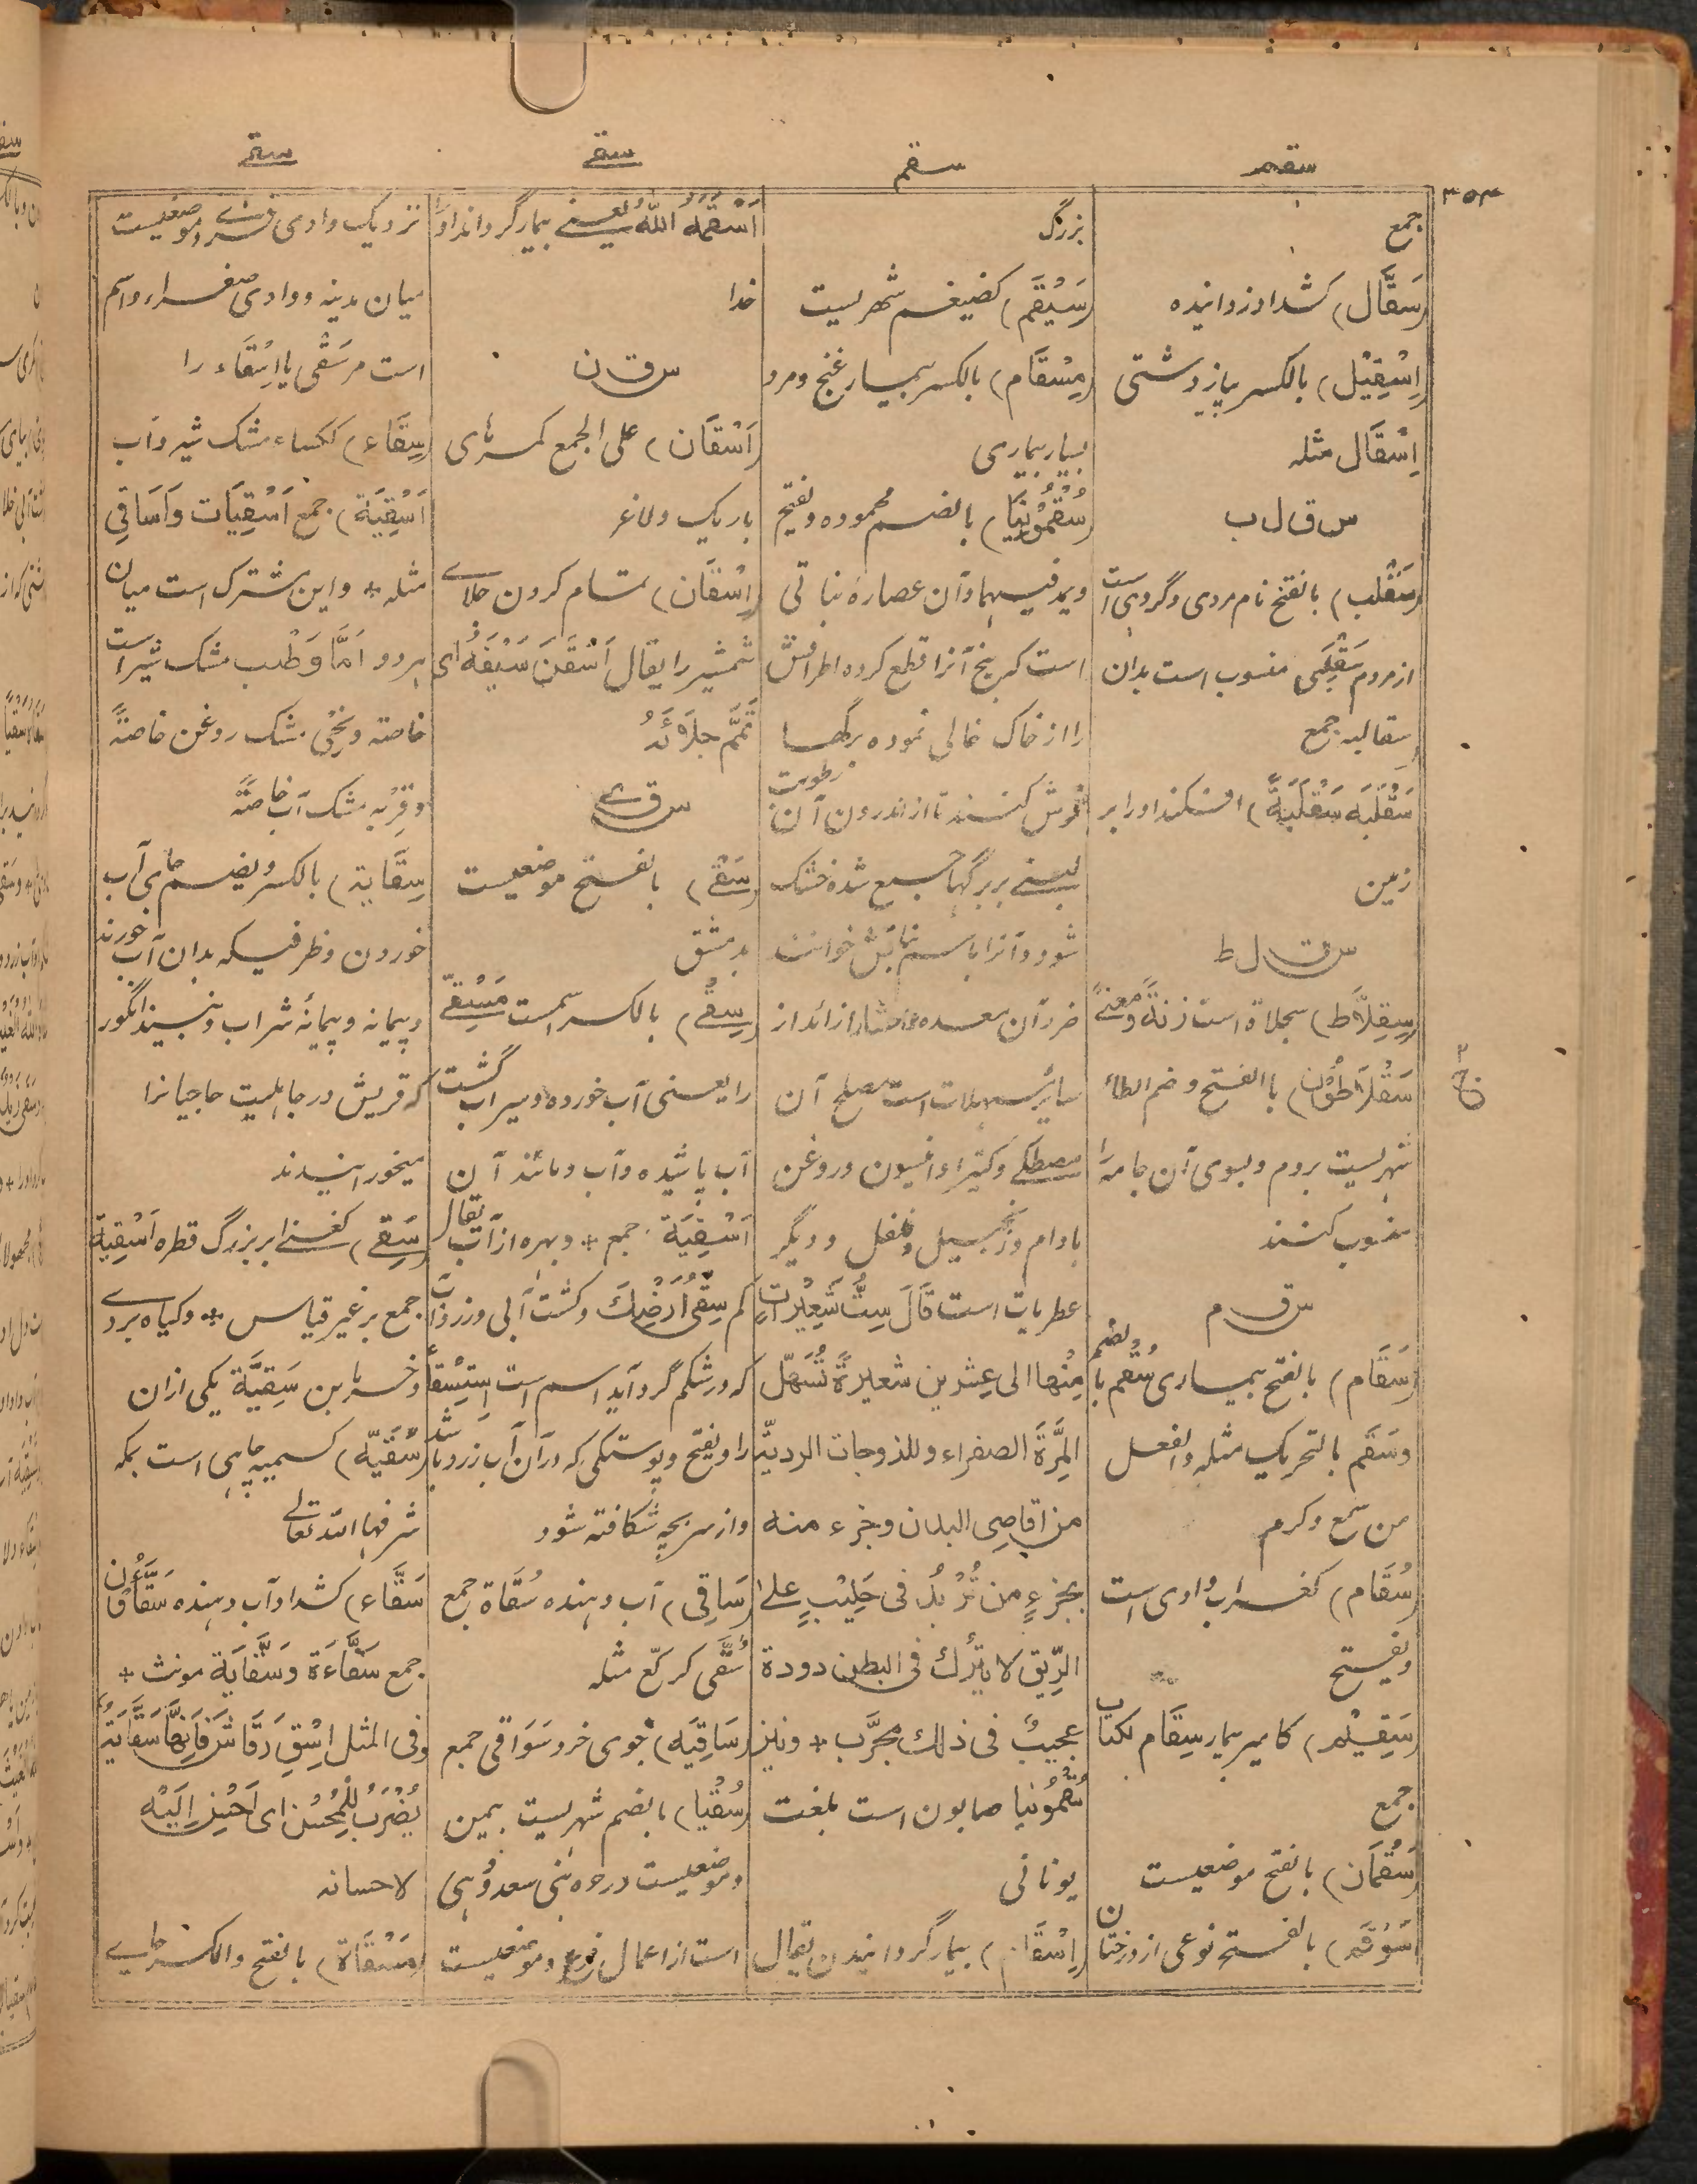 سقم
سقم
سقے
سقے
۳۵۴
جمع
(سَقَّال) کشداد زدانیده
(اِسْقِیْل) بالکسر پیاز دشتی
اِسْقَال مثله
س ق ل ب
(سَقْلَب) بالفتح نام مردی و گروهی است
از مردم سَقْلَبِی منسوب است بدان
سقالبه جمع
سَقْلَبَه سَقْلَبَةً) افکند او را بر
زمین
س ق ل ط
(سِقِلَّاط) سجلاة است زنةً و معنےً
سَقْلَاطُوْن) باالفتح و ضم الطاء
شهریست بروم و بسوی آن جامه را
منسوب کنند
س ق م
(سَقَام) بالفتح بیماری سُقم بالضم
وسَقَم بالتحریک مثله والفعل
من سمع وکرم
(سُقَام) کغراب وادی است
ویفتح
(سَقِیْم) کامیر بیمار سِقَام ککتاب
جمع
(سَقْمَان) بالفتح موضعیست
(سَوْقَم) بالفتح نوعی از درختان
بزرگ
(سَیْقَم) کضیغم شهریست
(مِسْقَام) بالکسر بیمار غنج و مرد
بسیار بیماری
(سُقْمُوْنیَا) بالضم محموده وبفتح
ویمد فیهما و آن عصارهٔ نباتی
است که بیخ آنرا قطع کرده اطرافش
را از خاک خالی نموده برگها
فرش کنند تا از اندرون آن رطوبت
یعنے بر برگها جمع شده خشک
شود و آنرا باسم نباتش خوانند
ضرر آن بمعده و احشا زائد از
سائر مسهلات است مصلح آن
مصطکے وکتیرا و افسیون و روغن
بادام وزنجبیل وفلفل و دیگر
عطریات است قَالَ سِتُّ شَعِیْرَاتٍ
مِنْها الی عِشْرین شعیرةً تُسَهِّل
المِرَّةَ الصفراء وللزوجات الردیّة
من اقاصِی البدان وجزء منه
بجزءٍ من تُرْبُد فی حَلِیْبٍ علے
الرِّیق لا یترُك فی البطن دودة
عجیبٌ فی ذلك مُجَرَّب * ونیز
سُقْمُونیا صابون است بلغت
یونانی
(اِسْقَام) بیمار گردانیدن یقال
اَسْقَمَهُ اللهُ یعنے بیمار گرداند او را
خدا
س ق ن
(اَسْقَان) علی الجمع کمرهای
باریک و لاغر
(اِسْقَان) تمام کردن جلاے
شمشیر را یقال اَسْقَنَ سَیْفَهُ ای
تَمَّمَ جلَاءَهُ
س ق ے
(سَقْے) بالفتح موضعیست
بدمشق
(سِقْے) بالکسر اسمست مَسْقِیّے
را یعنی آب خورده و سیراب گشت
آب پاشیده و آب و مانند آن
اَسْقِیَة جمع * وبهره از آب یقال
کم سِقْیُ اَرْضِكَ و کشت آبی و زردآب
که در شکم گرد آید اسم است اِسْتِسْقَاء
را ویفتح و پوستکی که در آن آب زرد باشد
و از سر بچه شگافته شود
(سَاقِی) آب دهنده سُقَاة جمع
سُقَّی کرکّع مثله
(سَاقِیَه) جوی خرد سَوَاقی جمع
(سُقْیا) بالضم شهریست بیمن
و موضعیست در حوه بنی سعد وُهی
است از اعمال فرع و موضعیست
نزدیک وادی
میان مدینه و وادی صفراء و اسم
است مر سَقْی یا اِسْقَاء را
(سِقَاء) ککساء مشک شیر و آب
اَسْقِیَة) جمع اَسْقِیَات وَاَسَاقِی
مثله * واین مشترک است میان
هر دو اَمَّا وَطْب مشک شیر است
خاصته و نِحْیُ مشک روغن خاصتهً
و قِربه مشک آب خاصتهً
سِقَایَة) بالکسر ویضم جای آب
خوردن و ظرفیکه بدان آب خورند
و پیمانه و پیمانهٔ شراب و نبیذ انگور
که قریش در جاهلیت حاجیانرا
میخورانیدند
(سَقِے) کغنے ابر بزرگ قطره اَسْقِیَة
جمع بر غیر قیاس * و گیاه بردے
و خرمابن سَقِیَّة یکی ازان
(سُقَیَّة) کسمیه چاهی است بمکه
شرفها الله تعالے
سَقَّاء) کشداد آب دهنده سَقَّاؤن
جمع سَقَّاءَة وسَقَّایَة مونث *
وفی المثل اِسْقِ رَقَاشِ فَاِنَّهَا سَقَّایَةٌ
یُضْرَبُ لِلْمُحْسِن ای اَحْسِن اِلَیْه
لاحسانه
(مسْقَاة) بالفتح والکسر جاے